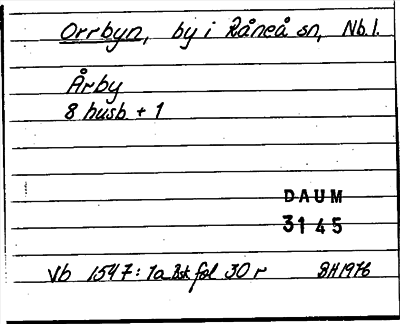 Orrbyn, by i Råneå sn, Nb.l.
Årby
8 husb. + 1
DAUM
3145
Vb 1547: 1a bsk fol 30 r SH1976